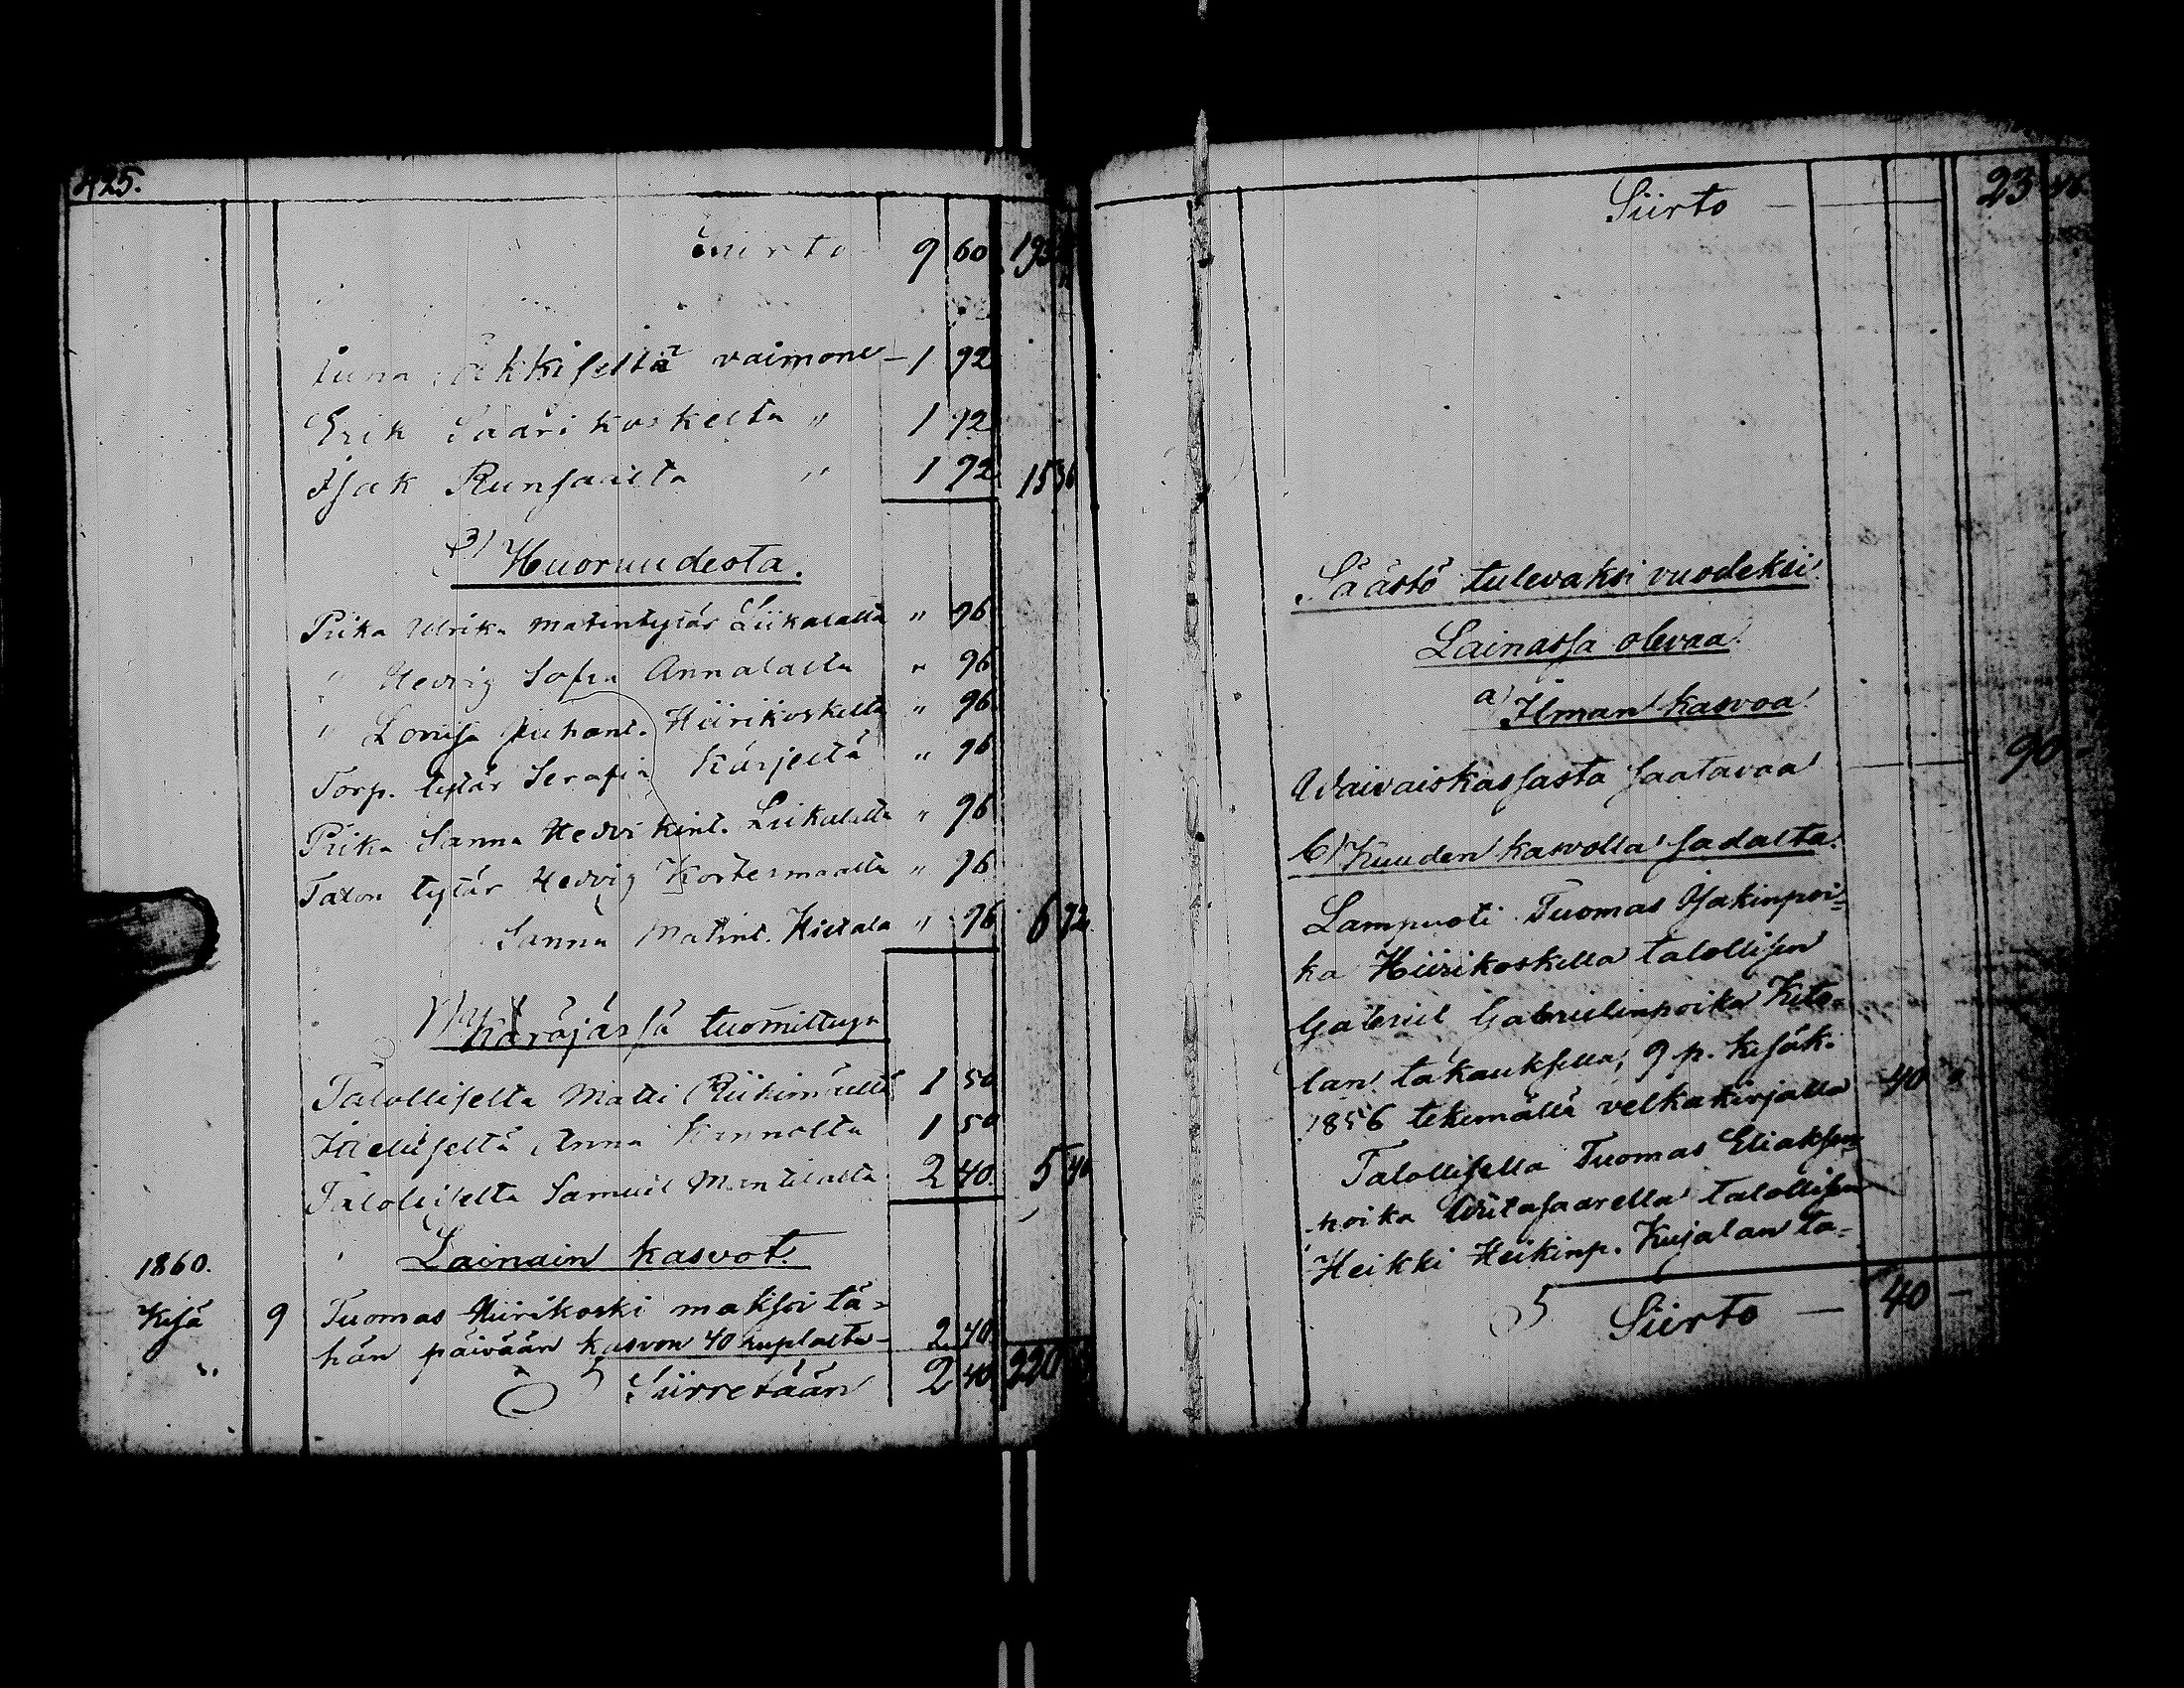 425.
Siirto 9 60
vaimone — 1 92
Erik Saarikoskelta " 1 92
Isak Runsaalta " 1 92 15 36
3) Huoruudesta.
Piika Ulrika Matintytär Liikalalta " 96
" Hedvig Sofia Annalalta " 96
" Lovisa Juhant. Hiirikoskelta " 96
Torp. tytär Serafia Kärjeltä " 96
Piika Sanna Hedvi Kint. Liikalalta " 96
Talon tytär Hedvig Kortesmaalta " 96
Sanna Matint. Hietala " 96 6 72
Käräjässä tuomittuja
Talolliselta Matti Riihimäeltä 1 50
Itselliseltä Anna Kannolta 1 50
Talolliselta Samuel Mantilalta 2 40 5 40
1860. Lainain kasvot.
Kesä 9 Tuomas Hiirikoski maksoi tä=
" hän päivään kasvon 40 ruplalta — 2 40
Siirretään 2 40 220
Siirto — 23
Säästö tulevaksi vuodeksi
Lainassa olevaa
a) Ilman kasvoa
Waivaiskassasta saatavaa — 90 -
b) Kuuden kasvolla sadalta.
Lampuoti Tuomas Isakinpoi=
ka Hiirikoskella talollisen
Gabriel Gabrielinpoika Keto=
lan takauksella, 9 p. kesäk.
1856 tekemällä velkakirjalla 40 "
Talollisella Tuomas Eliaksen=
poika Wiitasaarella talollisen
Heikki Heikinp. Kujalan ta=
Siirto — 40 —